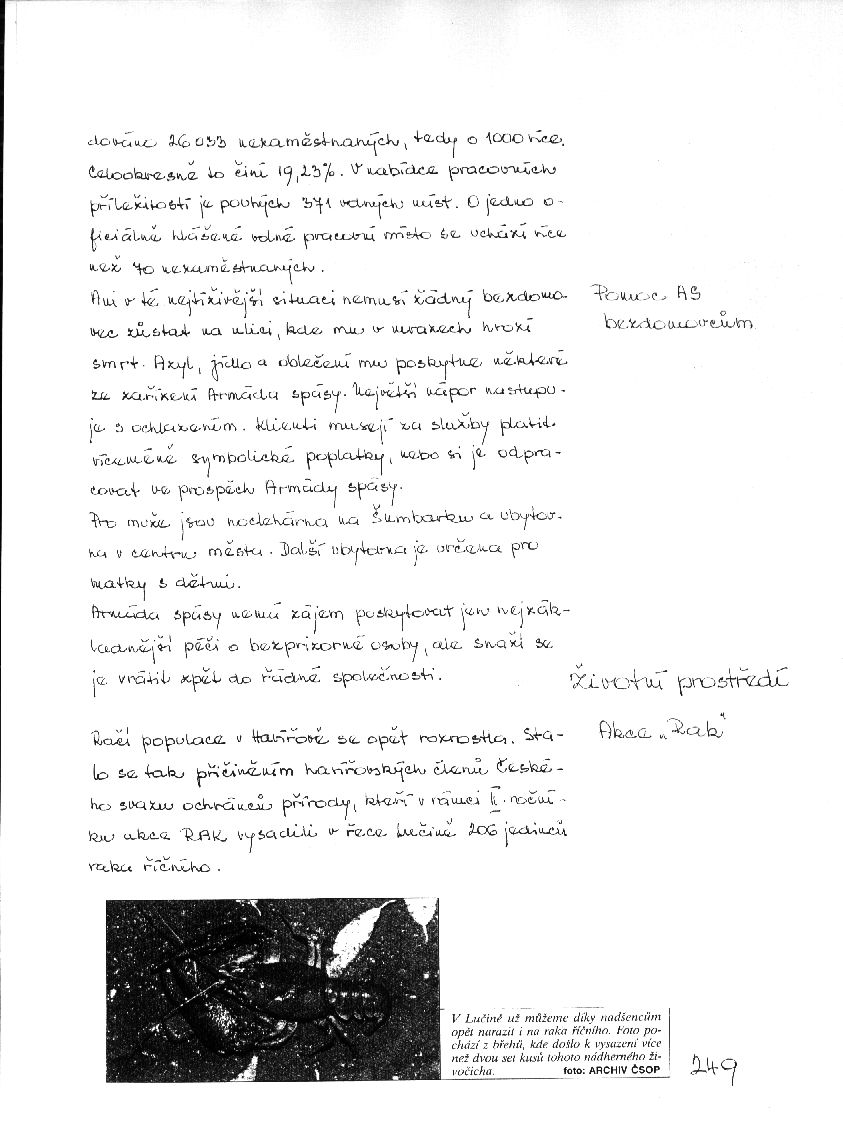 dováno 26 033 nezaměstnaných, tedy o 1000 více.
Celookresně to činí 19,23%. V nabídce pracovních
příležitostí je pouhých 371 volných míst. O jedno o-
ficiálně hlášené volné pracovní místo se uchází více
než 70 nezaměstnaných.
Ani v té nejtíživější situaci nemusí žádný bezdomo-
vec zůstat na ulici, kde mu v mrazech hrozí
smrt. Azyl, jídlo a oblečení mu poskytne některé
ze zařízení Armáda spásy. Největší nápor nastupu-
je s ochlazením. Klienti musejí za služby platit
víceméně symbolické poplatky, nebo si je odpra-
covat ve prospěch Armády spásy.
Pomoc AS
bezdomovcům
Pro muže jsou noclehárna na Šumbarku a ubytov-
na v centru města. Další ubytovna je určena pro
matky s dětmi.
Armáda spásy nemá zájem poskytovat jen nejzák-
ladnější péči o bezprizorné osoby, ale snaží se
je vrátit zpět do řádné společnosti.
Životní prostředí
Akce „Rak"
Račí populace v Havířově se opět rozrostla. Sta-
lo se tak přičiněním havířovských členů České-
ho svazu ochránců přírody, kteří v rámci II. roční-
ku akce RAK vysadili v řece Lučině 206 jedinců
raka říčního.
V Lučině už můžeme díky nadšencům
opět narazit i na raka říčního. Foto po-
chází z břehů, kde došlo k vysazení více
než dvou set kusů tohoto nádherného ži-
vočicha. foto: ARCHIV ČSOP
249